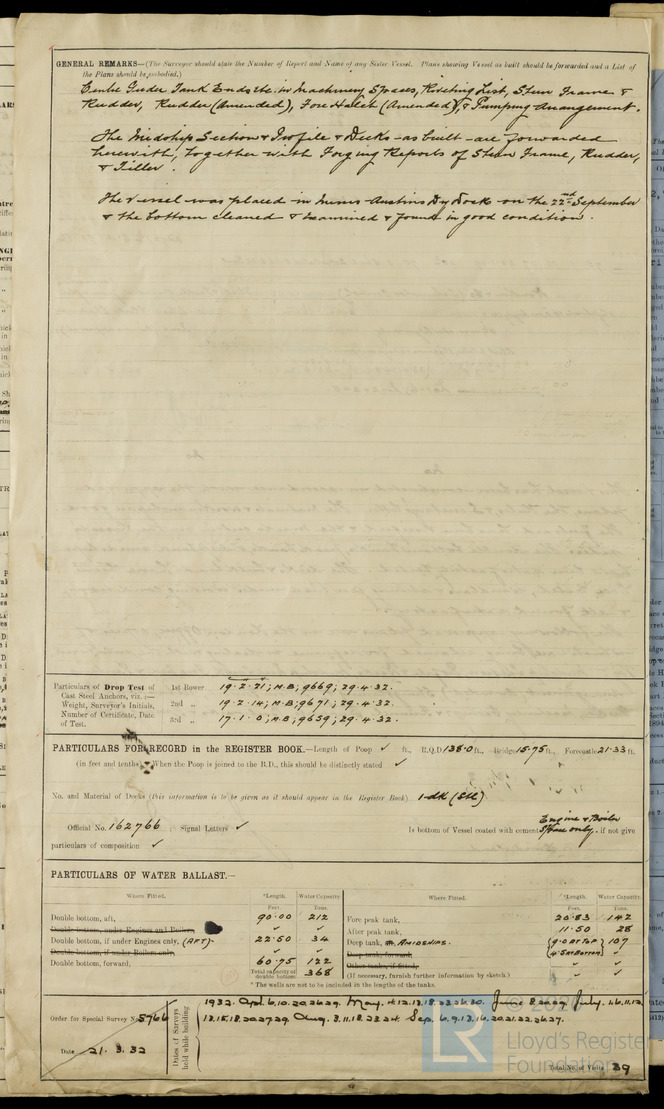 GENERAL REMARKS—(The Surveyor should state the Number of Report and Name of any Sister Vessel. Plans showing Vessel as built should be forwarded and a List of
the Plans should be embodied.)
Centre Girder Tank Ends &c. in Machinery Spaces, Riveting List, Stern Frame &
Rudder, Rudder (Amended), Fore Hatch (Amended), & Pumping Arrangement.
The Midship Section & Profile & Decks - as built - are forwarded
herewith, together with Forging Reports of Stern Frame, Rudder,
& Tiller.
The vessel was placed in Austins Dry Dock on the 22nd September
& the bottom cleaned & examined & found in good condition.
Particulars of Drop Test of
Cast Steel Anchors, viz.:—
Weight, Surveyor's Initials,
Number of Certificate, Date
of Test.
1st Bower 19.2.21; M.B; 9669; 29.4.32.
2nd „ 19.2.14; M.B; 9671; 29.4.32.
3rd „ 17.1.0; M.B; 9659; 29.4.32.
PARTICULARS FOR RECORD in the REGISTER BOOK.—Length of Poop ✓ ft., R.Q.D 138.0 ft., Bridge 15.75 ft., Forecastle 21.33 ft.
(in feet and tenths) When the Poop is joined to the B.D., this should be distinctly stated ✓
No. and Material of Decks (this information is to be given as it should appear in the Register Book) 1-dk (Stl)
Official No. 162766 ; Signal Letters ✓ Is bottom of Vessel coated with cement Engine & Boiler Space only. if not give
particulars of composition ✓
PARTICULARS OF WATER BALLAST.—
Where Fitted. *Length. Water Capacity. Where Fitted. *Length. Water Capacity.
Feet. Tons. Feet. Tons.
Double bottom, aft, 90.00 212 Fore peak tank, 20.83 142
Double bottom, under Engines and Boilers, ✓ ✓ After peak tank, 11.50 28
Double bottom, if under Engines only, (AFT). 22.50 34 Deep tank, AMIDSHIPS. (9.0 AT TOP) 107
Double bottom, if under Boilers only, ✓ ✓ Deep tank, forward, (4.5 AT BOTTOM) ✓
Double bottom, forward, 60.75 122 Other tanks, if fitted, ✓ ✓
Total capacity of double bottom 368 (If necessary, furnish further information by sketch.) ✓ ✓
* The wells are not to be included in the lengths of the tanks.
Order for Special Survey No. 5766
Date 21.3.32
Dates of Surveys
held while building
1932. Apl. 6.10.20.26.29. May. 4.12.13.18.23.26.30. June 8.20.29. July. 4.6.11.12.
13.15.18.20.27.29. Aug. 3.11.18.23.24. Sep. 6.9.13.16.20.21.22.26.27.
Total No. of Visits 39
© 2020
LR
Lloyd's Register
Foundation